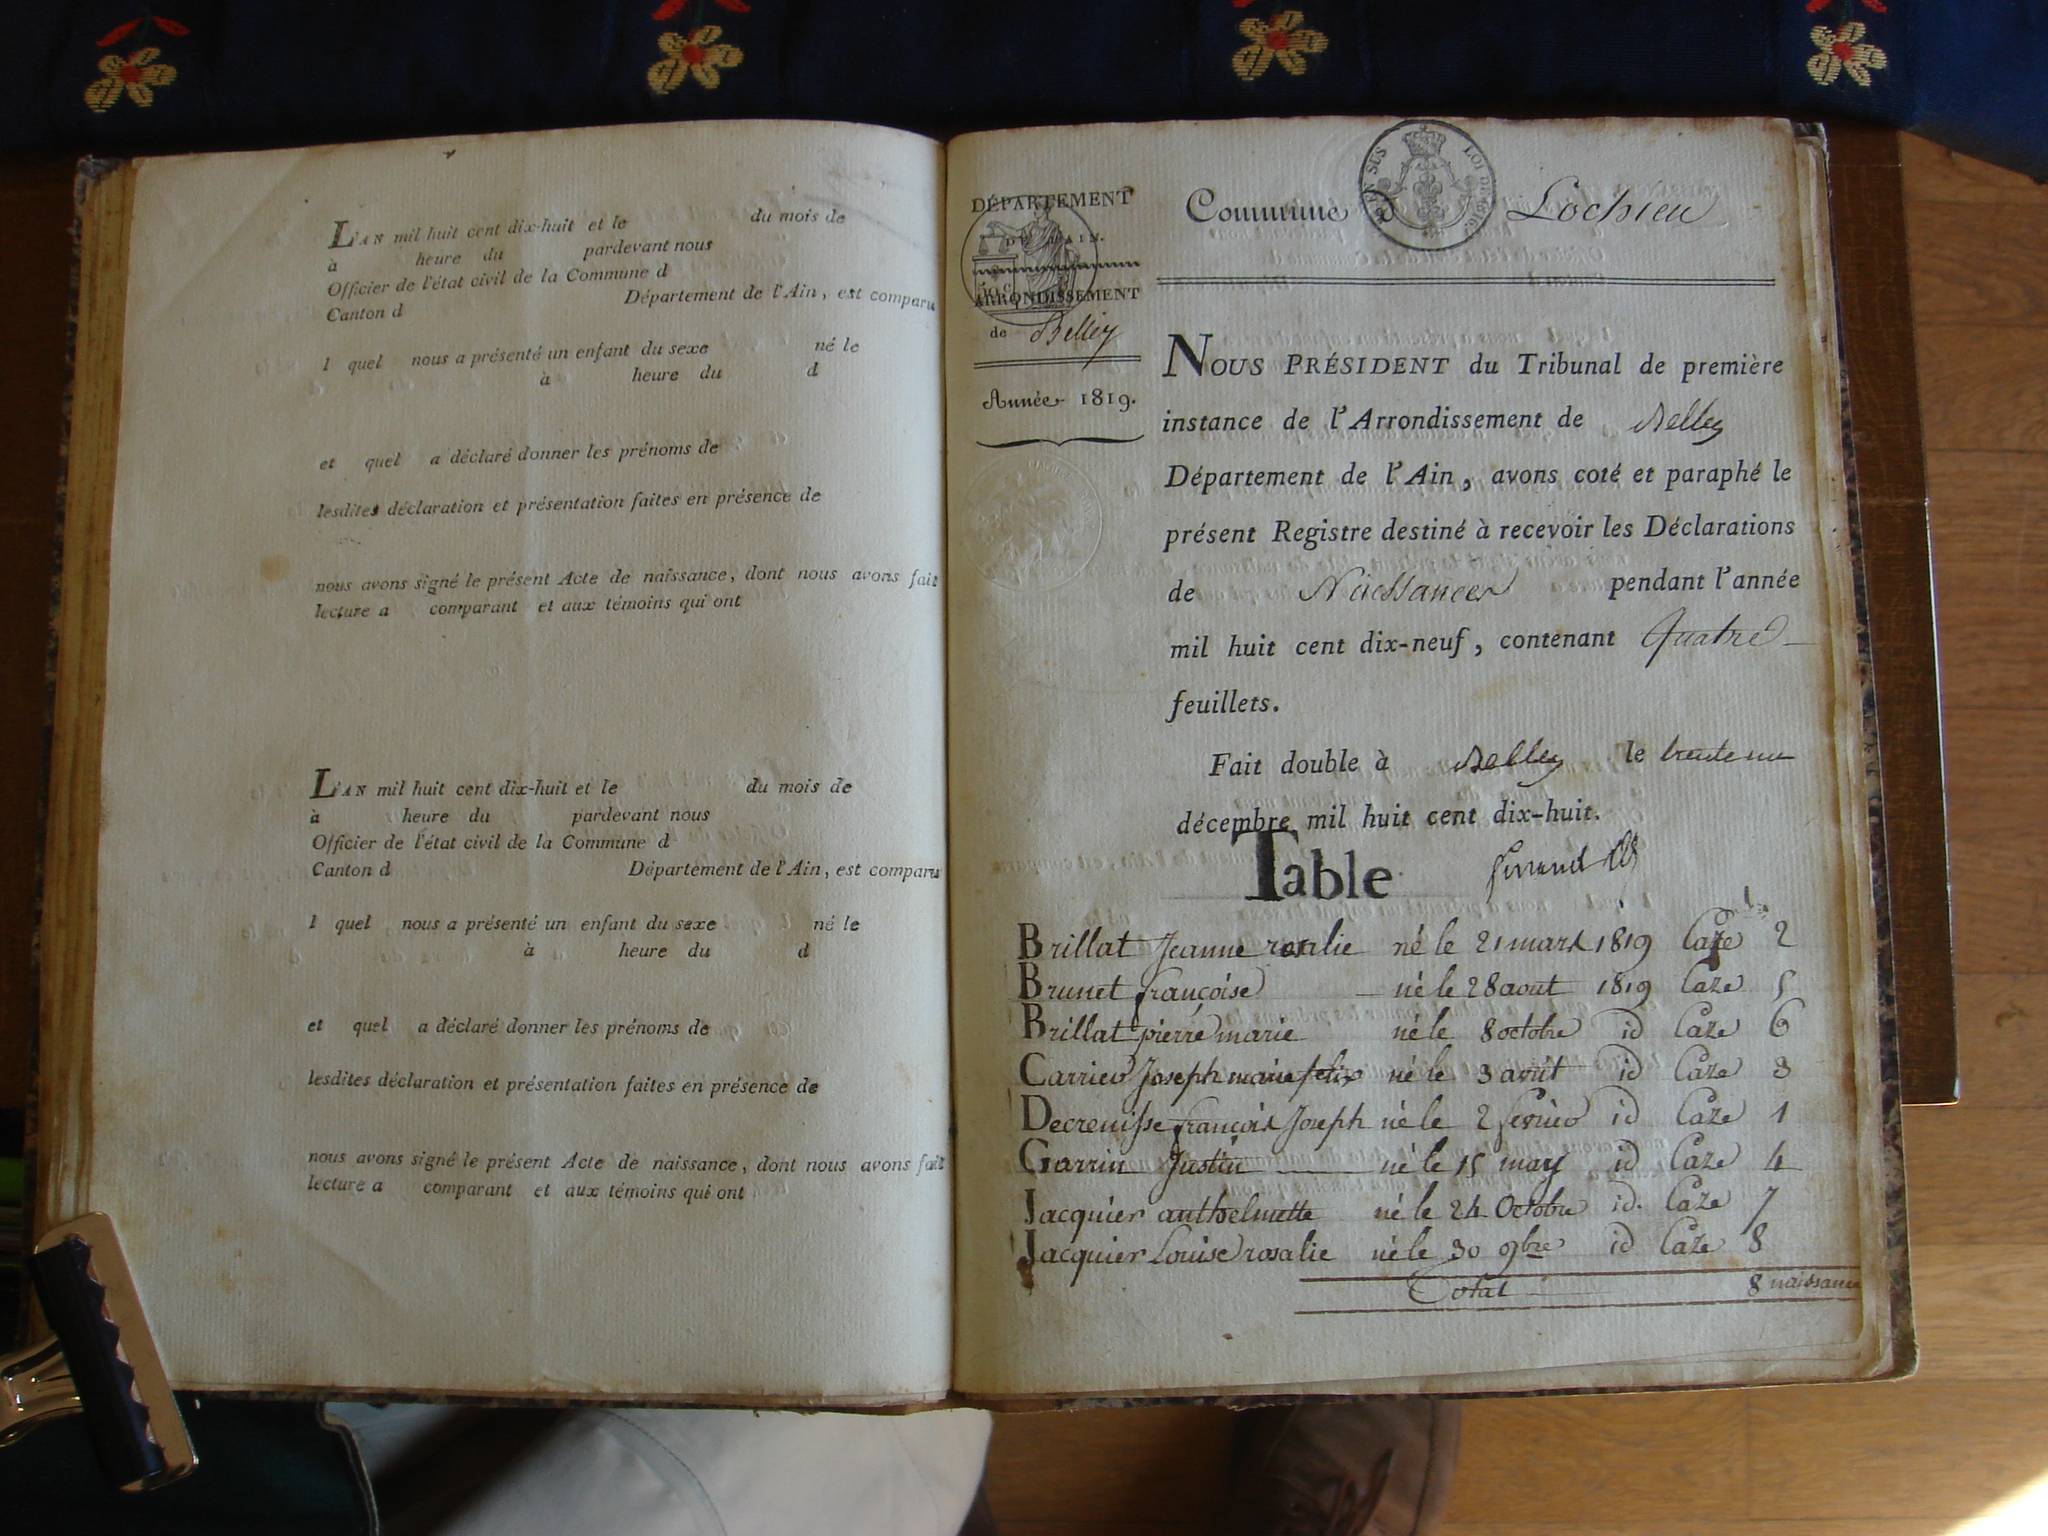 L'AN mil huit cent dix-huit et le du mois de
à heure du pardevant nous
Officier de l'état civil de la Commune d
Canton d Département de l'Ain, est comparu
l quel nous a présenté un enfant du sexe né le
à heure du d
et quel a déclaré donner les prénoms de
lesdites déclaration et présentation faites en présence de
nous avons signé le présent Acte de naissance, dont nous avons fait
lecture a comparant et aux témoins qui ont
L'AN mil huit cent dix-huit et le du mois de
à heure du pardevant nous
Officier de l'état civil de la Commune d
Canton d Département de l'Ain, est comparu
l quel nous a présenté un enfant du sexe né le
à heure du d
et quel a déclaré donner les prénoms de
lesdites déclaration et présentation faites en présence de
nous avons signé le présent Acte de naissance, dont nous avons fait
lecture a comparant et aux témoins qui ont
DÉPARTEMENT
DE L'AIN.
ARRONDISSEMENT
de Belley
Année 1819.
Commune d Lochieu
EN SUS LOI DE
NOUS PRÉSIDENT du Tribunal de première
instance de l'Arrondissement de Belley
Département de l'Ain, avons coté et paraphé le
présent Registre destiné à recevoir les Déclarations
de Naissances pendant l'année
mil huit cent dix-neuf, contenant quatre
feuillets.
Fait double à Belley le trente un
décembre mil huit cent dix-huit.
Table
Brillat Jeanne rosalie né le 21 mars 1819 Caze 2
Brunet françoise né le 28 aout 1819 Caze 5
Brillat pierre marie né le 8 octobre id Caze 6
Carrier Joseph marie felix né le 3 avril id Caze 3
Decrenisse françois Joseph né le 2 fevrier id Caze 1
Garrin Justin né le 15 may id Caze 4
Jacquier anthelmette né le 24 Octobre id. Caze 7
Jacquier Louise rosalie né le 30 9bre id Caze 8
Total 8 naissances